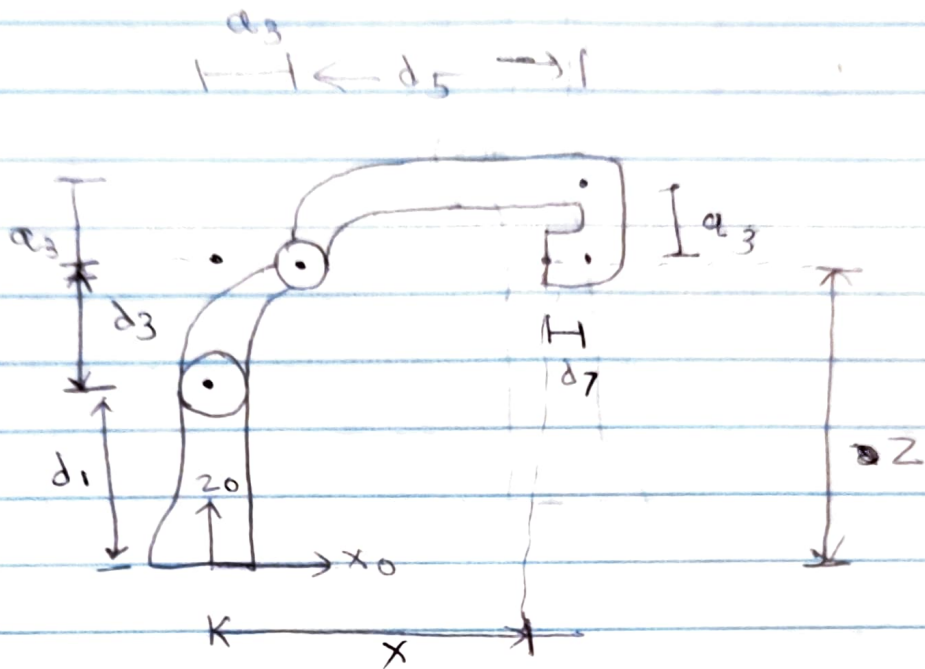 a3
d5
a3
a3
d3
d7
d1
Z
z0
x0
X